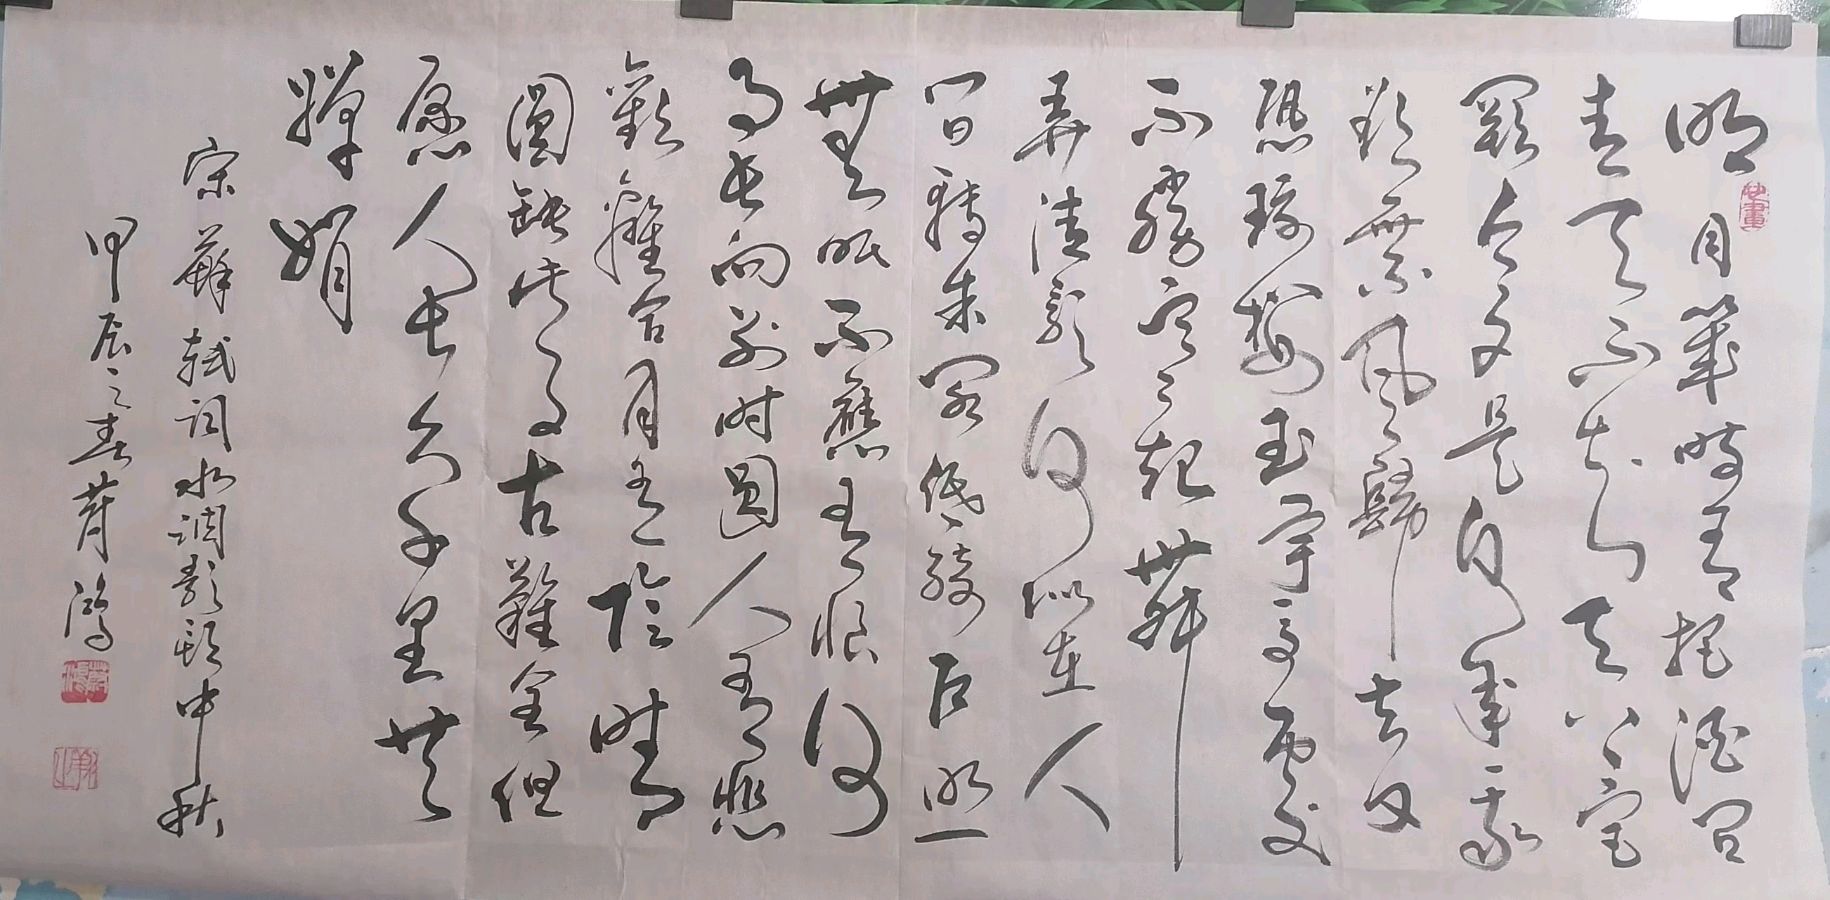 明月幾時有把酒问
青天不知天上宫
闕今夕是何年我
欲乘风歸去又
恐瓊楼玉宇高處
不勝寒起舞
弄清影何似在人
间轉朱阁低绮户照
無眠不應有恨何
事长向别时圆人有悲
歡離合月有阴晴
圆缺此事古難全但
愿人长久千里共
嬋娟
宋蘇轼词水调歌頭中秋
甲辰之春 鴻